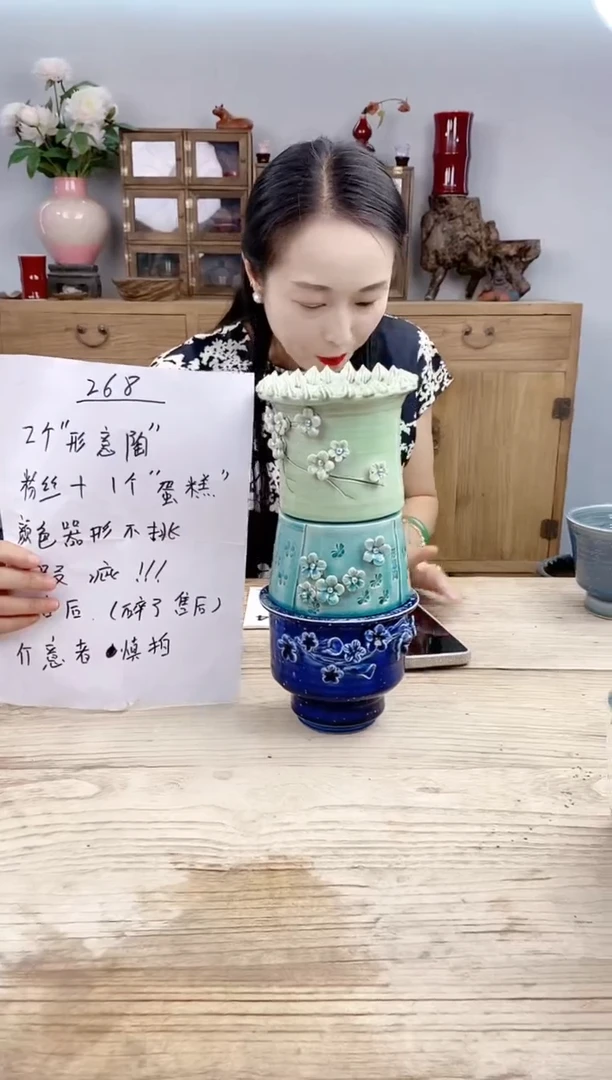 268
2个"形意陶"
粉丝+1个"蛋糕"
颜色器形不挑
疵!!!
后.(碎了售后)
介意者慎拍